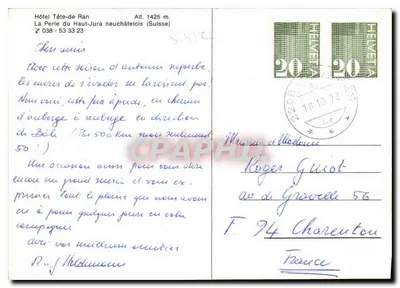 Hôtel Tête-de Ran Alt. 1425 m.
La Perle du Haut-Jura neuchâtelois (Suisse)
038 / 53 33 23
Chers amis
Avec cette saison d'automne superbe,
les envies de s'évader ne laissent pas!
Nous voici, cette fois à pieds, en chemin
d'auberge à auberge en direction
de Bâle (Pas 500 km mais seulement
50!)
Une occasion aussi pour vous dire
encore un grand merci et vous ex-
primer tout le plaisir que nous avons
eu à passer quelques jours en votre
compagnie
avec nos meilleures amitiés
HELVETIA
20
HELVETIA
20
Monsieur et Madame
Roger Guiot
av de Gravelle 56
F 94 Charenton
France
CPARAMA